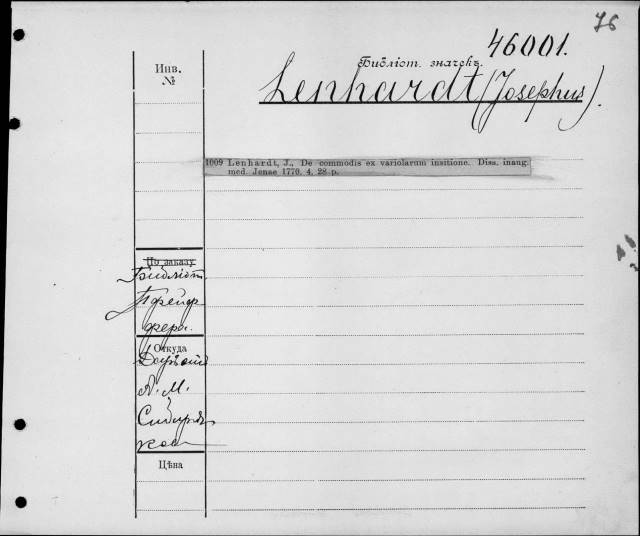 76
46001.
Библіот. значекъ.
Lenhardt (Josephus).
Инв.
№
1009 Lenhardt, J., De commodis ex variolarum insitione. Diss. inaug.
med. Jenae 1770. 4. 28 p.
По заказу
Библіот.
Откуда
А. М.
Сибиряк
Цѣна